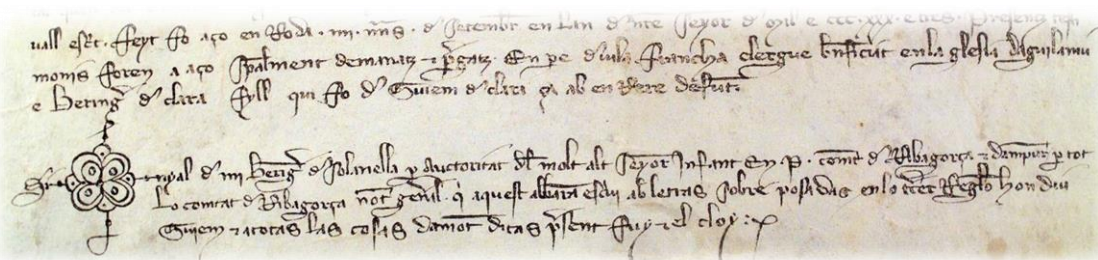 uall escͥt. ffeyt fo aço en Roda .iiii. nꝰs. dͤ Setembrͤ en lan dͤ nrͤe Seyor dͤ Mil e CCC. XXX. e tres. Presentz testi
monis foren a aço spͤalment demanatz ⁊ p̄gatz. En pe dͤ uila francha clergue bn̄ficiat en la glesia daguilaniu
e bering̉ dͤ clara fyll qui fo dͤ Guiem dͤ clara ça ab en rere defunt.
Sig nyal dͤ mi bering̉ dͤ solanella ꝑ auctoritat dl̄ molt alt seyor Infant En .P. comte dͤ Ribagorça ⁊ dampur̄ ꝑ tot
Lo comtat dͤ Ribagorça not̄ gen̄al. qͥ aquest albara escriu ab letras sobre posadas en lo Regl̄o hon diu
Guiem ⁊ a totas las cosas damont ditas p̄sent fuy ⁊ el cloy :